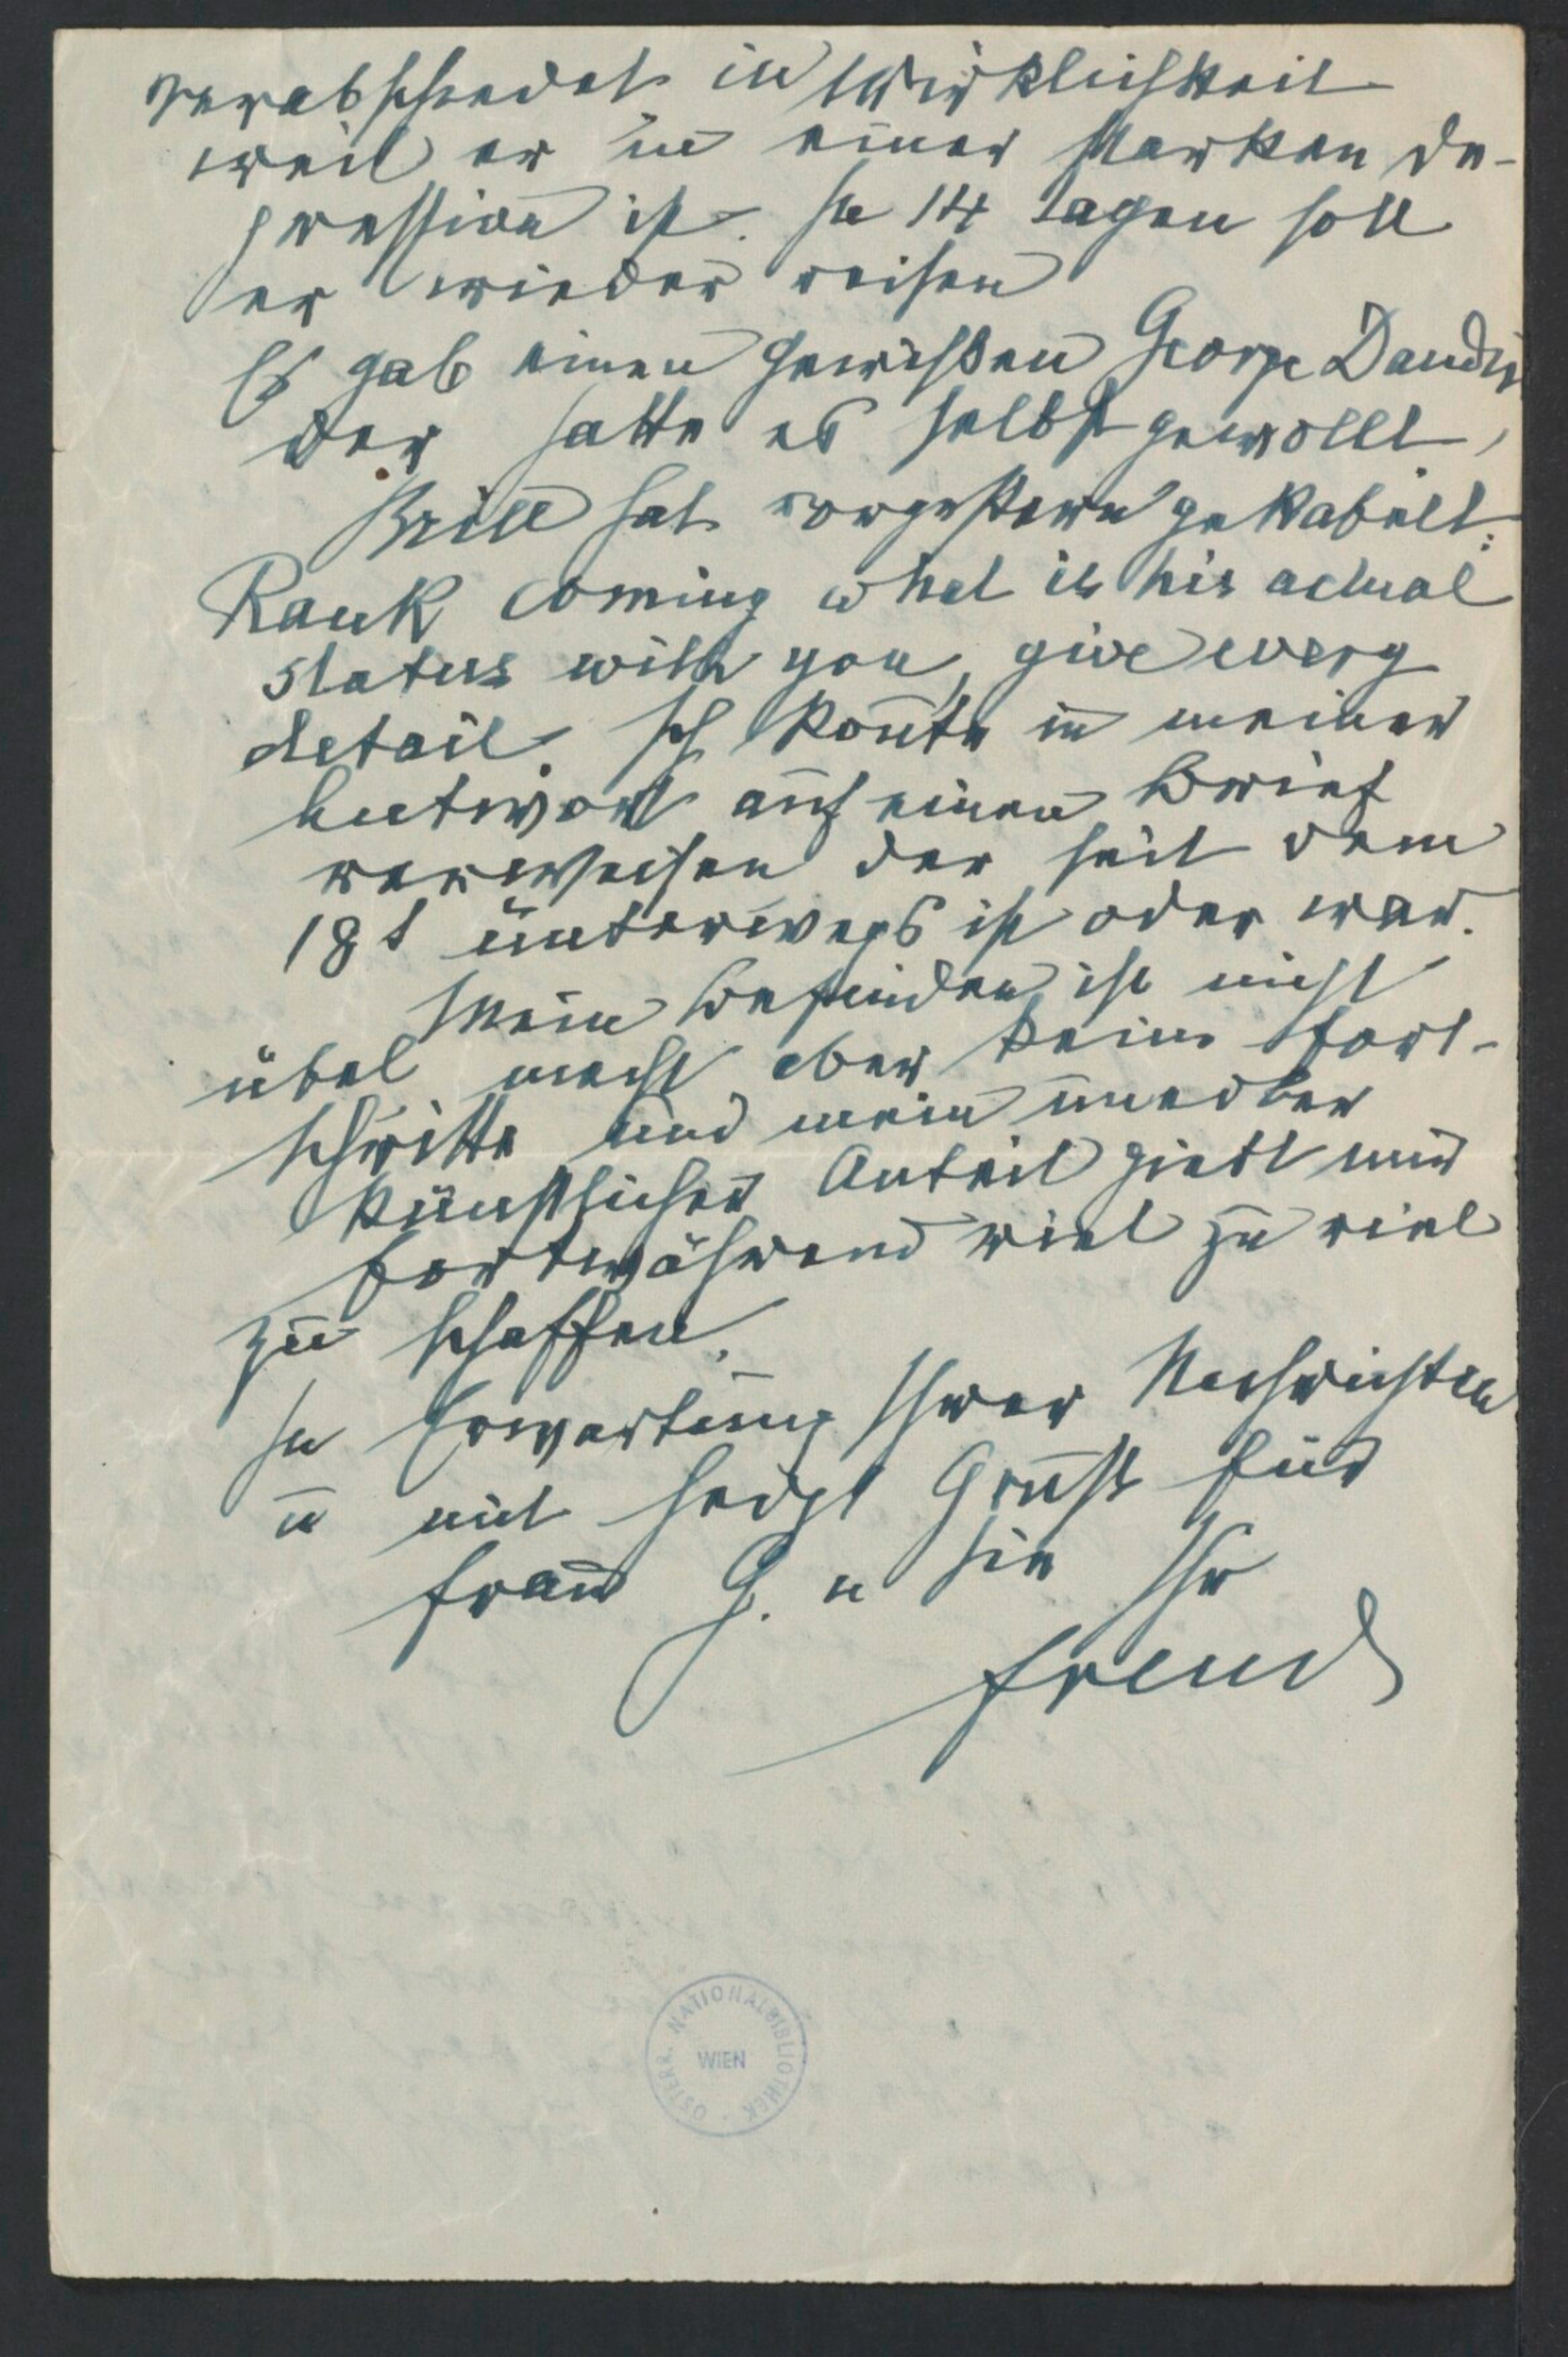 verabschiedet in Wirklichkeit
weil er in einer starken De-
pression ist. In 14 Tagen soll
er wieder reisen
Es gab einen gewissen George Dandin
der hatte es selbst gewollt,
Brill hat vorgestern gekabelt:
Rank coming what is his actual
status with you, give every
detail. Ich konnte in meiner
Antwort auf einen Brief
verweisen der seit dem
18t unterwegs ist oder war.
Mein Befinden ist nicht
übel macht aber keine Fort-
schritte und mein unedler
künstlicher Anteil giebt mir
fortwährend viel zu viel
zu schaffen.
In Erwartung Ihrer Nachrichten
u mit herzl Gruß für
Frau G. u Sie Ihr
Freud
ÖSTERR. NATIONALBIBLIOTHEK
WIEN